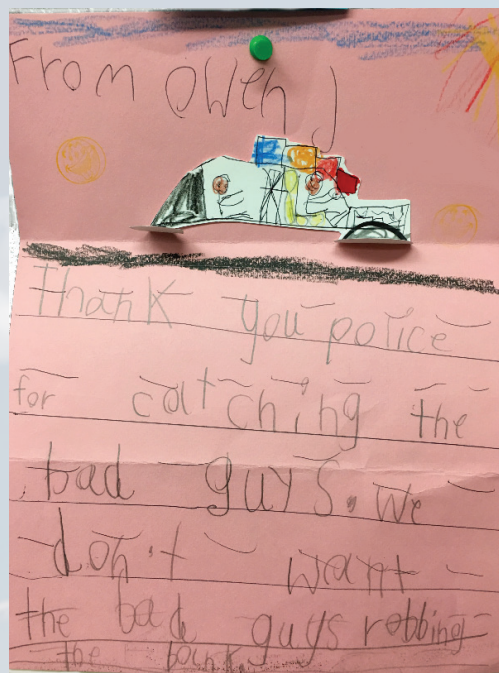 From Owen J
Thank you police
for catching the
bad guys. We
don't want
the bad guys robbing
the bank.